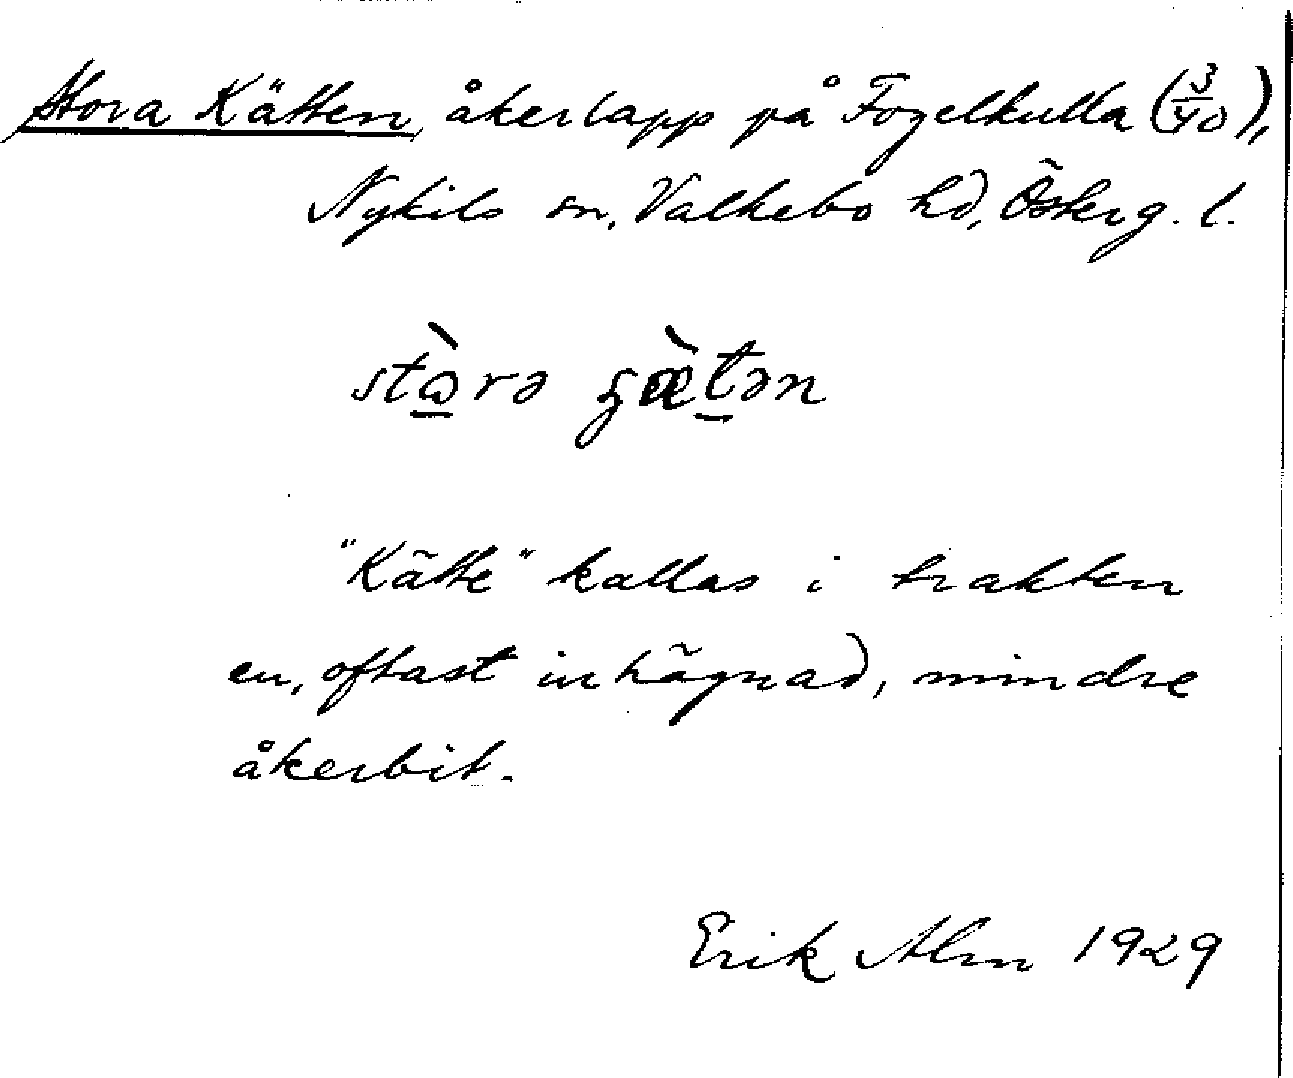 Stora Kätten, åkerlapp på Fogelkulla (3/40),
Nykils sn, Valkebo hd, Österg. l.
stὼ̲rə ʂæ̀t̲ən
"Kätte" kallas i trakten
en, oftast inhägnad, mindre
åkerbit.
Erik Alm 1929